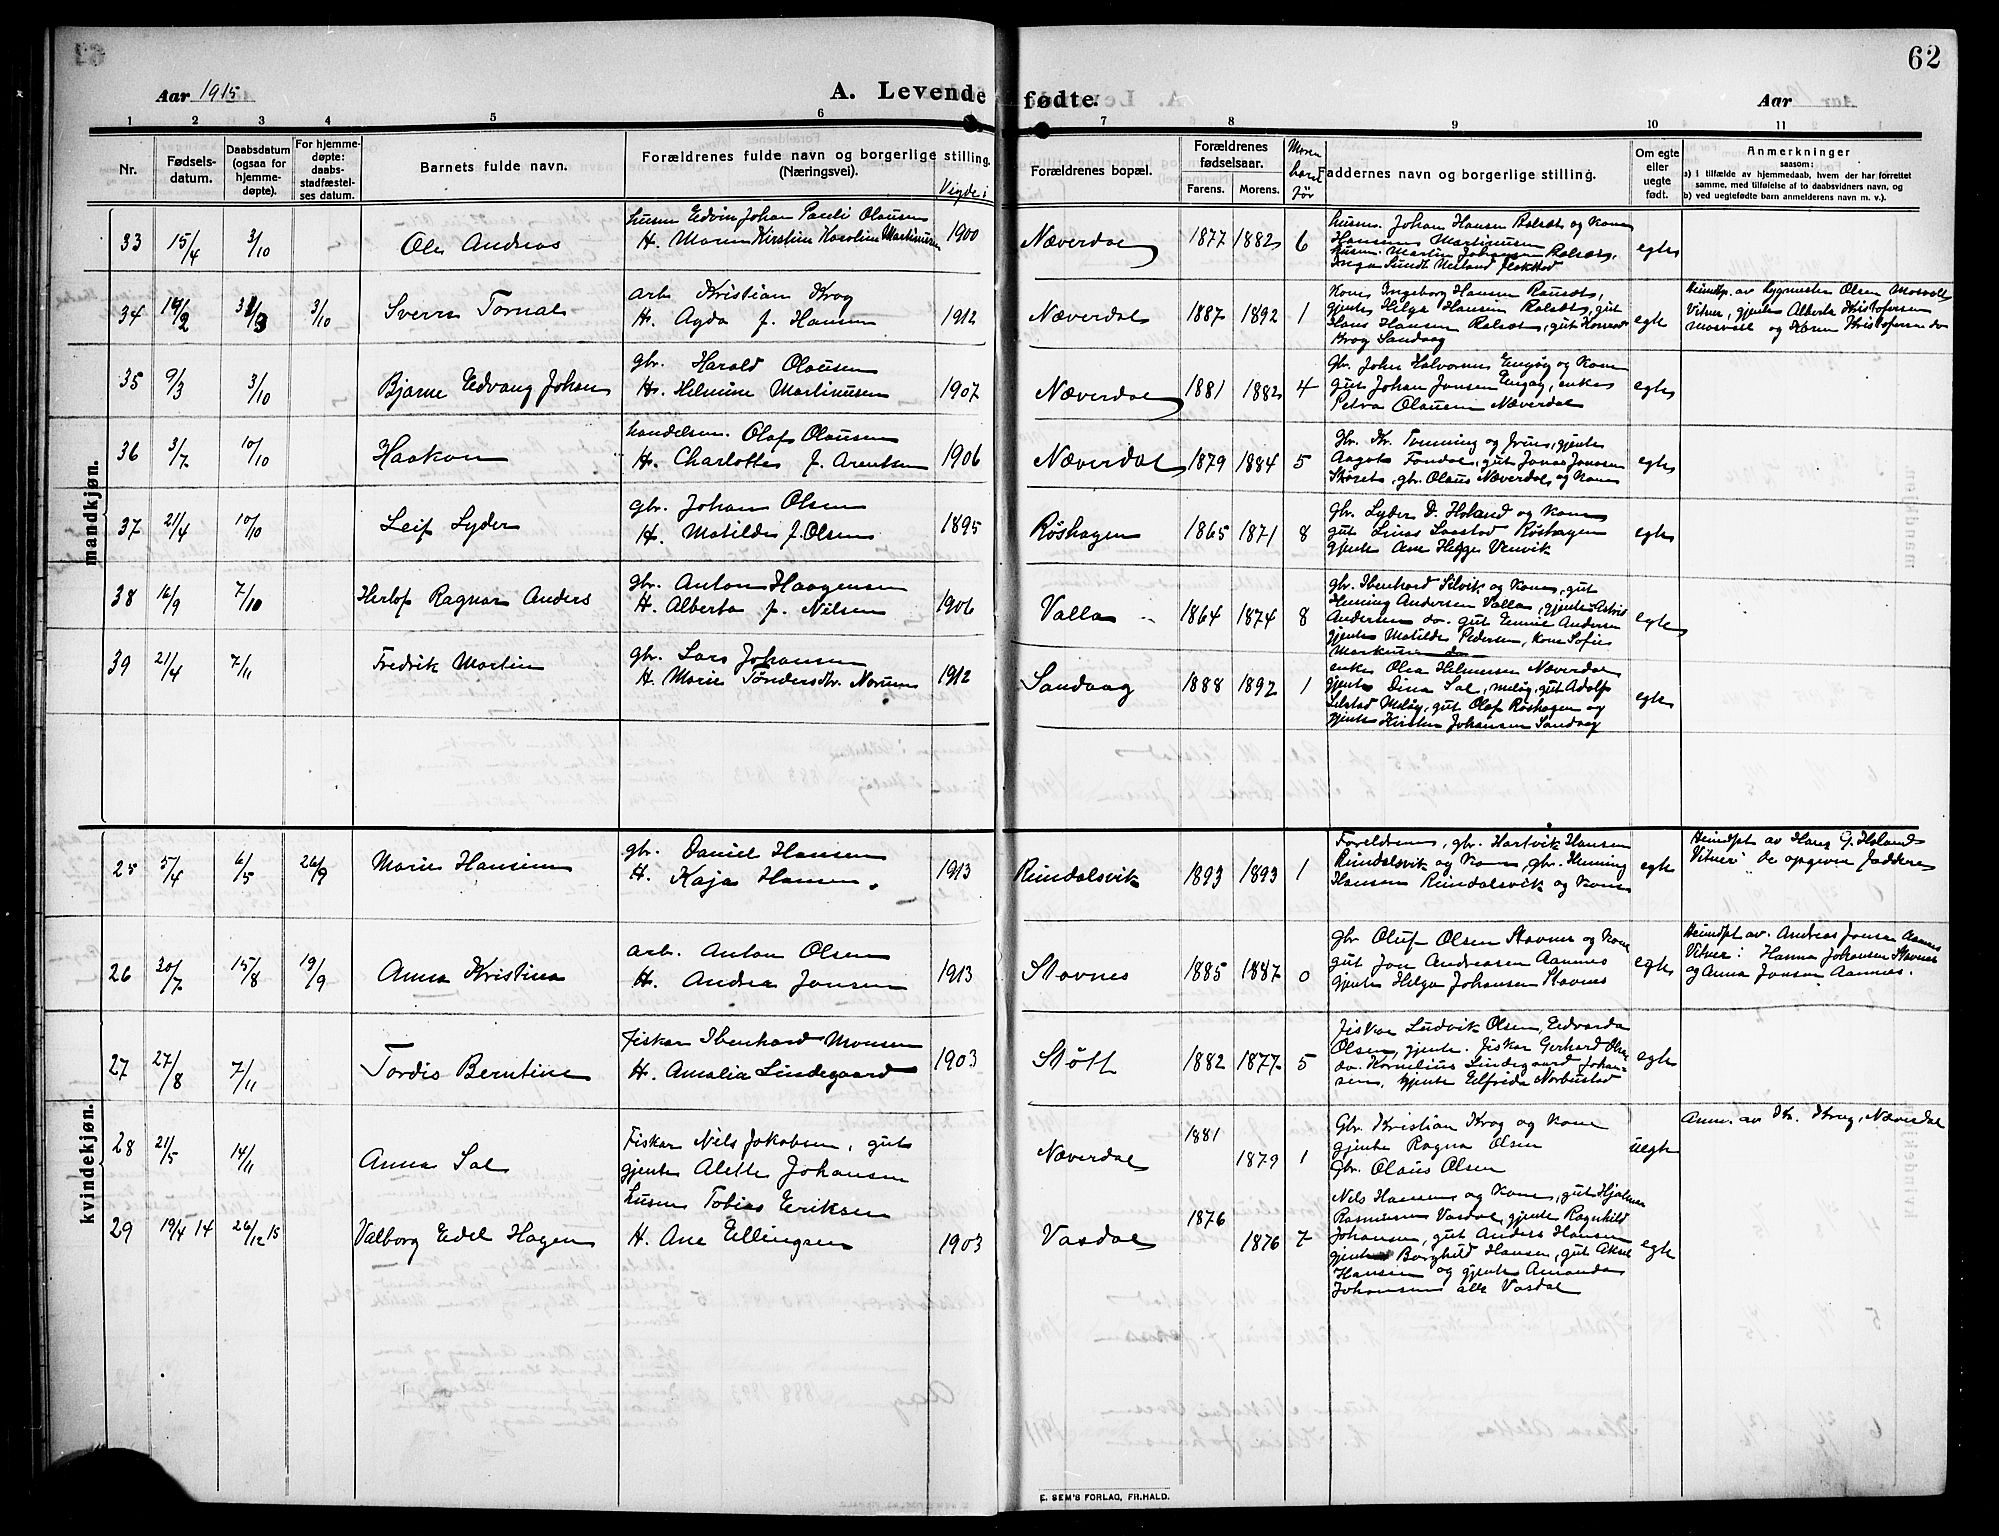 62
Aar 1915
A. Levende fødte.
Aar
1 2 3 4 5 6 7 8 9 10 11
Nr.
Fødsels-
datum.
Daabsdatum
(ogsaa for
hjemme-
døpte).
For hjemme-
døpte:
daabs-
stadfæstel-
ses datum.
Barnets fulde navn.
Forældrenes fulde navn og borgerlige stilling.
(Næringsvei).
Vigde i
Forældrenes bopæl.
Forældrenes
fødselsaar.
Farens. Morens.
Moren
barn
før
Faddernes navn og borgerlige stilling.
Om egte
eller
uegte
født.
Anmerkninger
saasom:
a) i tilfælde av hjemmedaab, hvem der har forrettet
samme, med tilføielse af to daabsvidners navn, og
b) ved uegtefødte barn anmelderens navn m. v.).
mandkjøn.
33 15/4 3/10 Ole Andreas
husm Edvin Johan Pauli Olausen
H. Maren Kirstine Karoline Martinusen 1900
Næverdal 1877 1882 6
husm. Johan Hansen og Kone
Hansine Martinusen
husm. Martin Johansen
egte
34 14/2 3/10 Sverre Tornal
arb Kristian Krog
H. Agda f. Hansen 1912
Næverdal 1887 1892 1
Kone Ingeborg Hansen
gjente Helga Hansen, gut
Hans Hansen, gut
Krog Sandaag
egte
Heimdp. av Olsen Mosvold
Vitner, gjente Alberte Kristofersen
Mosvold og Karen Kristofersen do
35 9/3 3/10 Bjarne Edvang Johan
gbr. Harald Olausen
H. Helmine Martinusen 1907
Næverdal 1881 1882 4
Gb. John Halvorsen Engøy og Kone
gut Johan Jensen Engøy, enke
Petra Olausen Næverdal
egte
36 3/7 10/10 Haakon
handelsm. Olaf Olausen
H. Charlotte f. Arentsen 1906
Næverdal 1879 1884 5
Hr. Kr. Tønning og frue, gjente
Aagot Fondal, gut Jonas Jonassen
Skoret, gbr. Olaus Næverdal og Kone
egte
37 21/4 10/10 Leif Lyder
gbr. Johan Olsen
H. Matilde f. Olsen 1895
Røshagen 1865 1871 8
gbr. Lyder D. Holand og Kone
gut Linus Røshagen
gjente Ane Helgge Venvik
egte
38 16/9 7/10 Herlof Ragnar Anders
gbr. Anton Haagensen
H. Alberta f. Nilsen 1906
Valla 1864 1874 8
gbr. Ibenhard Selvik og Kone, gut
Heming Andersen Valla, gjente Astrid
Andersen do. gut Emil Andersen
gjente Matilde Pedersen, Kone Sofie
Markusen do
egte
39 21/4 7/11 Fredrik Martin
gbr. Lars Johansen
H. Marie Tøndersdtr. Norum 1912
Sandaag 1888 1892 1
enke Olea Helmesen Næverdal
gjente Dina Sal, Meløy, gut Adolf
Selstad Meløy, gut Olaf Røshagen og
gjente Kirsten Johansen Sandaag
egte
kvindekjøn.
25 5/4 6/5 26/9 Marie Hansine
gbr. Daniel Hansen
H. Kaja Hansen. 1913
Reindalsvik 1893 1893 1
Foreldrene, gbr. Hartvik Hansen
Reindalsvik og Kone, gbr. Heming
Hansen Reindalsvik og Kone
egte
Heimdpt av Hans G. Holand
Vitner: De opgivne faddere
26 20/7 15/8 19/9 Anna Kristine
arb. Anton Olsen
H. Andrea Jensen 1913
Stavnes 1885 1887 0
gbr Oluf Olsen Stavnes og Kone
gut Jon Andreasen Aamnes
gjente Helga Johansen Stavnes
egte
Heimdpt av. Andreas Jensen Aamnes
Vitner: Hanna Johansen Stavnes
og Anna Jensen Aamnes.
27 27/8 7/11 Tordis Berntine
Fisker Ibenhard Monsen
H. Amalia Lindegaard 1903
Støtt 1882 1877 5
Fisker Ludvik Olsen, Edvarda
Olsen, gjente. Fisker Gerhard
do. Kornelius Lindegaard Johan-
sen, gjente Elfrida Norbustad
egte
28 21/5 14/11 Anna Sal
Fisker Nils Jakobsen, gut
gjente Alette Johansen
Næverdal 1881 1879 1
Gbr. Kristian Krog og Kone
gjente Ragna Olsen
Gbr. Olaus Olsen
uegte
Anm. av Kr. Krog, Næverdal
29 19/4 14 26/12 15 Valborg Edel Hagen
husm Tobias Eriksen
H. Ane Ellingsen 1903
Vasdal 1876 1876 7
Nels Hansen og Kone, gut Hjalmar
Rasmusen Vasdal, gjente Ragnhild
Johansen, gut Anders Hansen
gjente Borghild Hansen, gut Aksel
Hansen og gjente Amanda
Johansen alle Vasdal
egte
E. SEM'S FORLAG, FR.HALD.